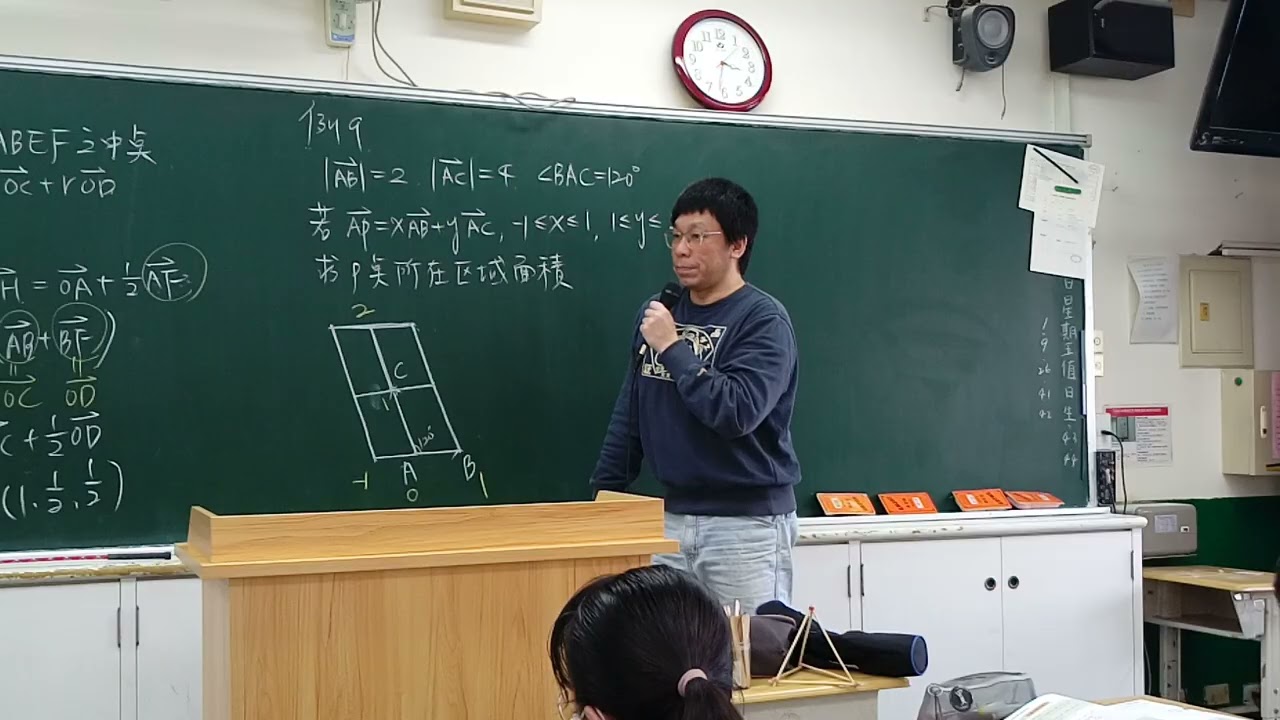 ABEF之中桌
OC+rOD
H = OA + 1/2 AF
AB + BF)
OC OD
C + 1/2 OD
(1, 1/2, 1/2)
例9
|AB|=2 |AC|=4 ∠BAC=120°
若 AP=xAB+yAC, -1≤x≤1, 1≤y≤
求P桌所在区域面積
2
C
1
120°
-1
A
B
0
1
日星期五值日生
1
9
26
41
42
43
44